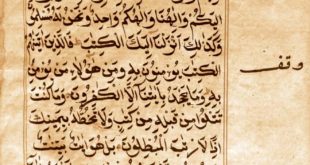 إليكم وإلهنا وإلهكم واحد ونحن له مسلمون
وكذلك أنزلنا إليك الكتب فالذين اتينهم
الكتب يؤمنون به ومن هؤلاء من يؤمن
به وما يجحد بايتنا إلا الكفرون وما كنت
تتلوا من قبله من كتب ولا تخطه بيمينك
إذا لارتاب المبطلون بل هو ايت بينت
وقف